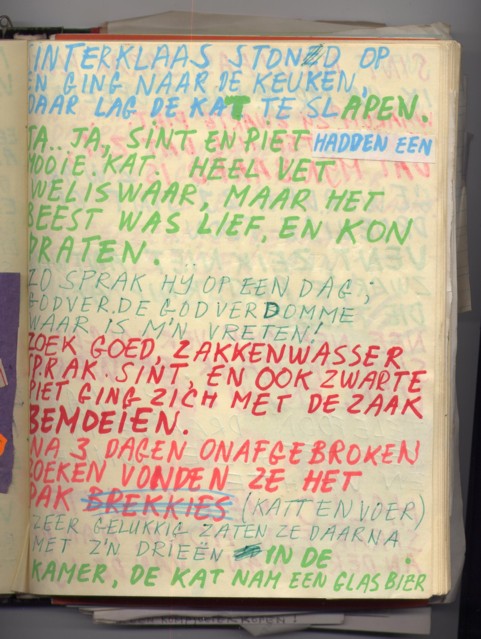 INTERKLAAS STOND OP
EN GING NAAR DE KEUKEN,
DAAR LAG DE KAT TE SLAPEN.
JA.. JA, SINT EN PIET HADDEN EEN
MOOIE. KAT. HEEL VET
WELISWAAR, MAAR HET
BEEST WAS LIEF, EN KON
PRATEN.
ZO SPRAK HIJ OP EEN DAG;
GODVER.DE GODVERDOMME
WAAR IS M'N VRETEN!
ZOEK GOED, ZAKKENWASSER
SPRAK. SINT, EN OOK ZWARTE
PIET GING ZICH MET DE ZAAK
BEMOEIEN.
NA 3 DAGEN ONAFGEBROKEN
ZOEKEN VONDEN ZE HET
PAK BREKKIES (KATTENVOER)
ZEER GELUKKIG ZATEN ZE DAARNA
MET Z'N DRIEËN IN DE
KAMER, DE KAT NAM EEN GLAS BIER